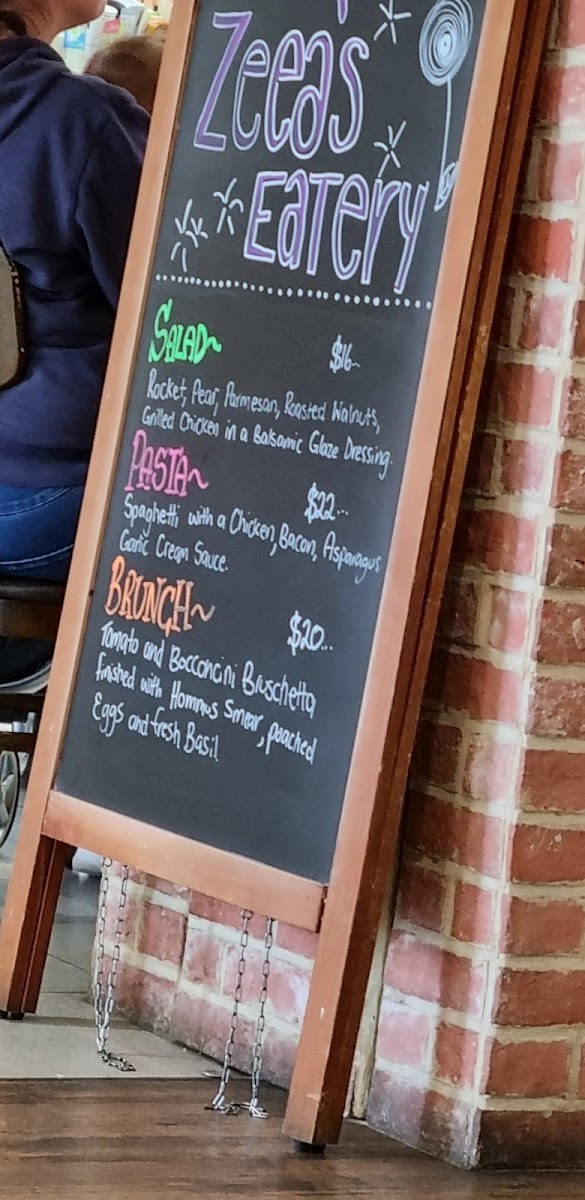 Zeea's
Eatery
Salad~
$16..
Rocket, Pear, Parmesan, Roasted Walnuts,
Grilled Chicken in a Balsamic Glaze Dressing.
Pasta~
$22...
Spaghetti with a Chicken, Bacon, Asparagus
Garlic Cream Sauce.
Brunch~
$20...
Tomato and Bocconcini Bruschetta
finished with Hommus Smear, poached
Eggs and fresh Basil